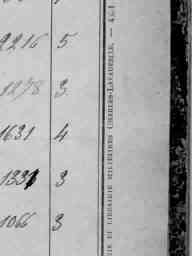 2216 5
1278 3
1631 4
1331 3
1066 3
RIE ET LIBRAIRIE MILITAIRES CHARLES-LAVAUZELLE. —